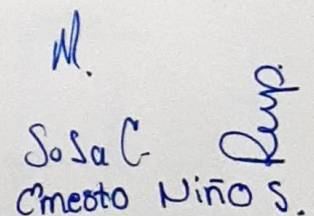 M.
SosaC
Ernesto Niño S.